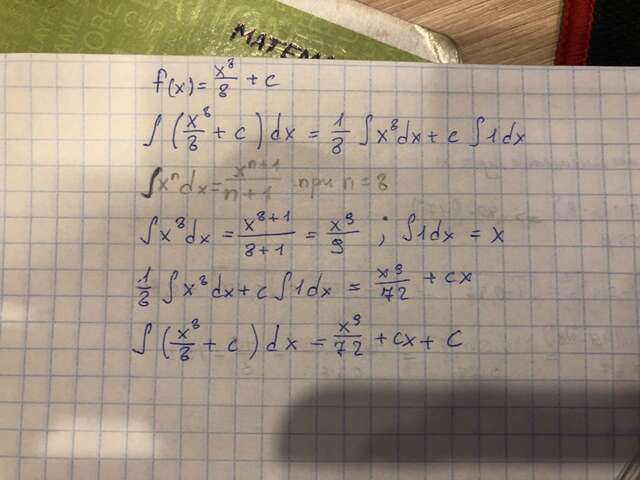 МАТЕМ
f(x) = x^8/8 + c
∫ (x^8/8 + c) dx = 1/8 ∫x^8dx + c ∫1dx
∫x^n dx = x^(n+1)/(n+1) при n = 8
∫x^8dx = x^(8+1)/(8+1) = x^9/9 ; ∫1dx = x
1/8 ∫x^8dx + c∫1dx = x^9/72 + cx
∫ (x^8/8 + c) dx = x^9/72 + cx + C